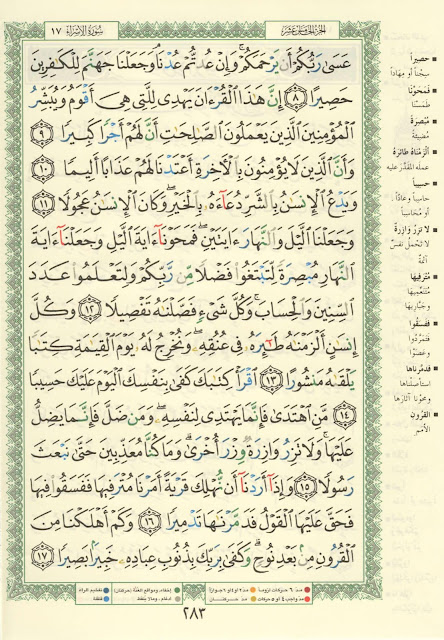 الجزء الخامس عشر
سُورَةُ الإِسْرَاءِ ١٧
عَسَىٰ رَبُّكُمْ أَن يَرْحَمَكُمْ ۚ وَإِنْ عُدتُّمْ عُدْنَا ۘ وَجَعَلْنَا جَهَنَّمَ لِلْكَٰفِرِينَ
حَصِيرًا ﴿٨﴾ إِنَّ هَٰذَا الْقُرْءَانَ يَهْدِى لِلَّتِى هِىَ أَقْوَمُ وَيُبَشِّرُ
الْمُؤْمِنِينَ الَّذِينَ يَعْمَلُونَ الصَّٰلِحَٰتِ أَنَّ لَهُمْ أَجْرًا كَبِيرًا ﴿٩﴾
وَأَنَّ الَّذِينَ لَا يُؤْمِنُونَ بِالْءَاخِرَةِ أَعْتَدْنَا لَهُمْ عَذَابًا أَلِيمًا ﴿١٠﴾
وَيَدْعُ الْإِنسَٰنُ بِالشَّرِّ دُعَآءَهُۥ بِالْخَيْرِ ۖ وَكَانَ الْإِنسَٰنُ عَجُولًا ﴿١١﴾
وَجَعَلْنَا الَّيْلَ وَالنَّهَارَ ءَايَتَيْنِ ۖ فَمَحَوْنَآ ءَايَةَ الَّيْلِ وَجَعَلْنَآ ءَايَةَ
النَّهَارِ مُبْصِرَةً لِّتَبْتَغُوا۟ فَضْلًا مِّن رَّبِّكُمْ وَلِتَعْلَمُوا۟ عَدَدَ
السِّنِينَ وَالْحِسَابَ ۚ وَكُلَّ شَىْءٍ فَصَّلْنَٰهُ تَفْصِيلًا ﴿١٢﴾ وَكُلَّ
إِنسَٰنٍ أَلْزَمْنَٰهُ طَٰٓئِرَهُۥ فِى عُنُقِهِۦ ۖ وَنُخْرِجُ لَهُۥ يَوْمَ الْقِيَٰمَةِ كِتَٰبًا
يَلْقَىٰهُ مَنشُورًا ﴿١٣﴾ اقْرَأْ كِتَٰبَكَ كَفَىٰ بِنَفْسِكَ الْيَوْمَ عَلَيْكَ حَسِيبًا
﴿١٤﴾ مَّنِ اهْتَدَىٰ فَإِنَّمَا يَهْتَدِى لِنَفْسِهِۦ ۖ وَمَن ضَلَّ فَإِنَّمَا يَضِلُّ
عَلَيْهَا ۚ وَلَا تَزِرُ وَازِرَةٌ وِزْرَ أُخْرَىٰ ۗ وَمَا كُنَّا مُعَذِّبِينَ حَتَّىٰ نَبْعَثَ
رَسُولًا ﴿١٥﴾ وَإِذَآ أَرَدْنَآ أَن نُّهْلِكَ قَرْيَةً أَمَرْنَا مُتْرَفِيهَا فَفَسَقُوا۟ فِيهَا
فَحَقَّ عَلَيْهَا الْقَوْلُ فَدَمَّرْنَٰهَا تَدْمِيرًا ﴿١٦﴾ وَكَمْ أَهْلَكْنَا مِنَ
الْقُرُونِ مِنۢ بَعْدِ نُوحٍ ۗ وَكَفَىٰ بِرَبِّكَ بِذُنُوبِ عِبَادِهِۦ خَبِيرًۢا بَصِيرًا ﴿١٧﴾
حصيراً
سجناً أو مهاداً
فمحونا
طمسنا
مبصرة
مضيئة
ألزمناه طائره
عمله المقدّر عليه
حسيباً
حاسباً وعادّاً
أو محاسباً
لا تزر وازرة
لا تحمل نفسٌ
آثمة
مترفيها
متنعّميها
وجبّاريها
ففسقوا
فتمرّدوا
وعصوا
فدمّرناها
استأصلناها
ومحونا آثارها
القرون
الأمم
مد ٦ حركات لزوماً مد ٢ أو ٤ أو ٦ جوازاً إخفاء، ومواقع الغنة (حركتان) تفخيم الراء
مد واجب ٤ أو ٥ حركات مد حركتان إدغام، وما لا يلفظ قلقلة
٢٨٣